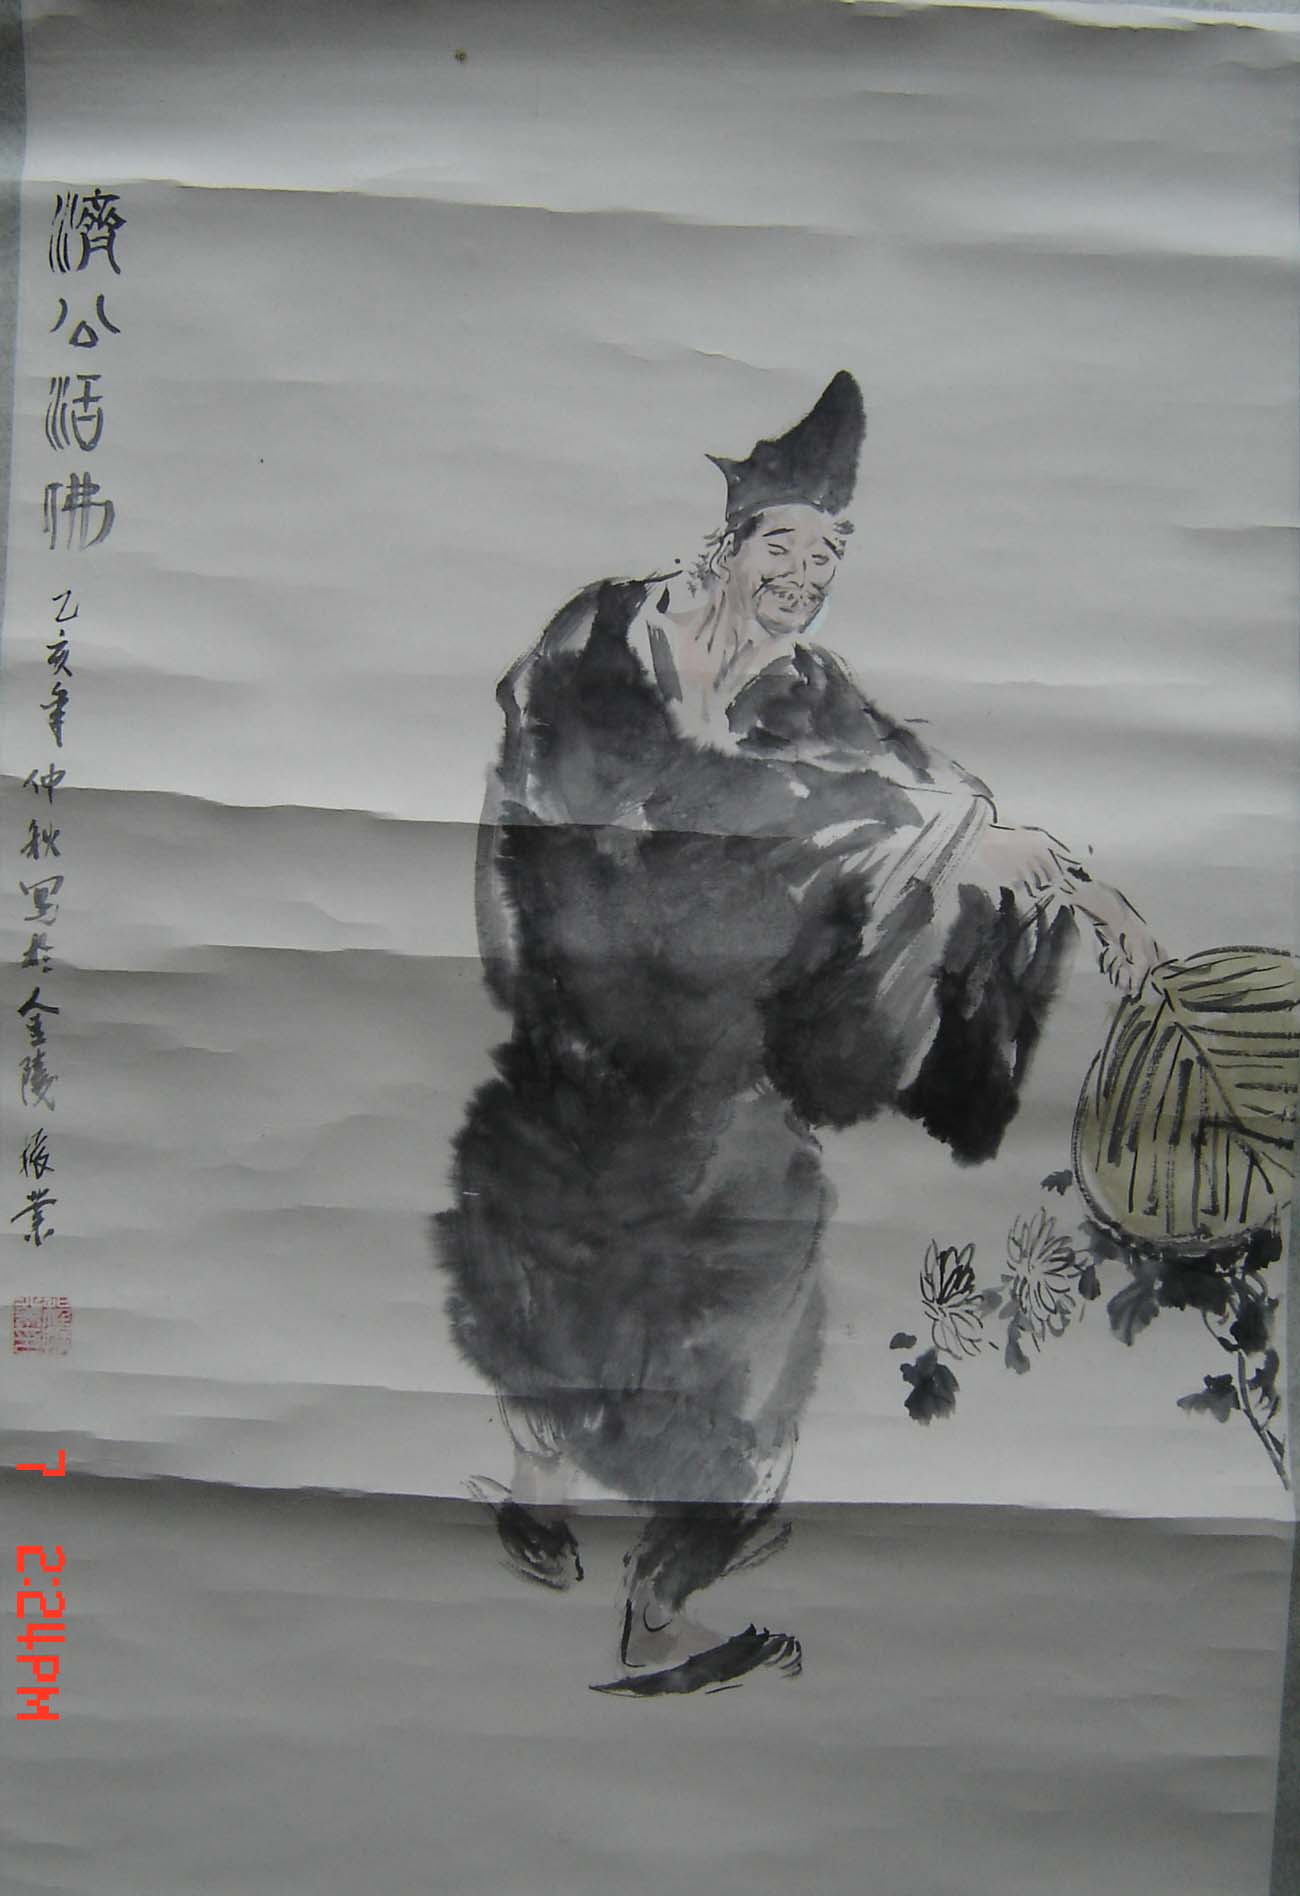 濟公活佛
乙亥年仲秋写於金陵 振業
7 2:24PM